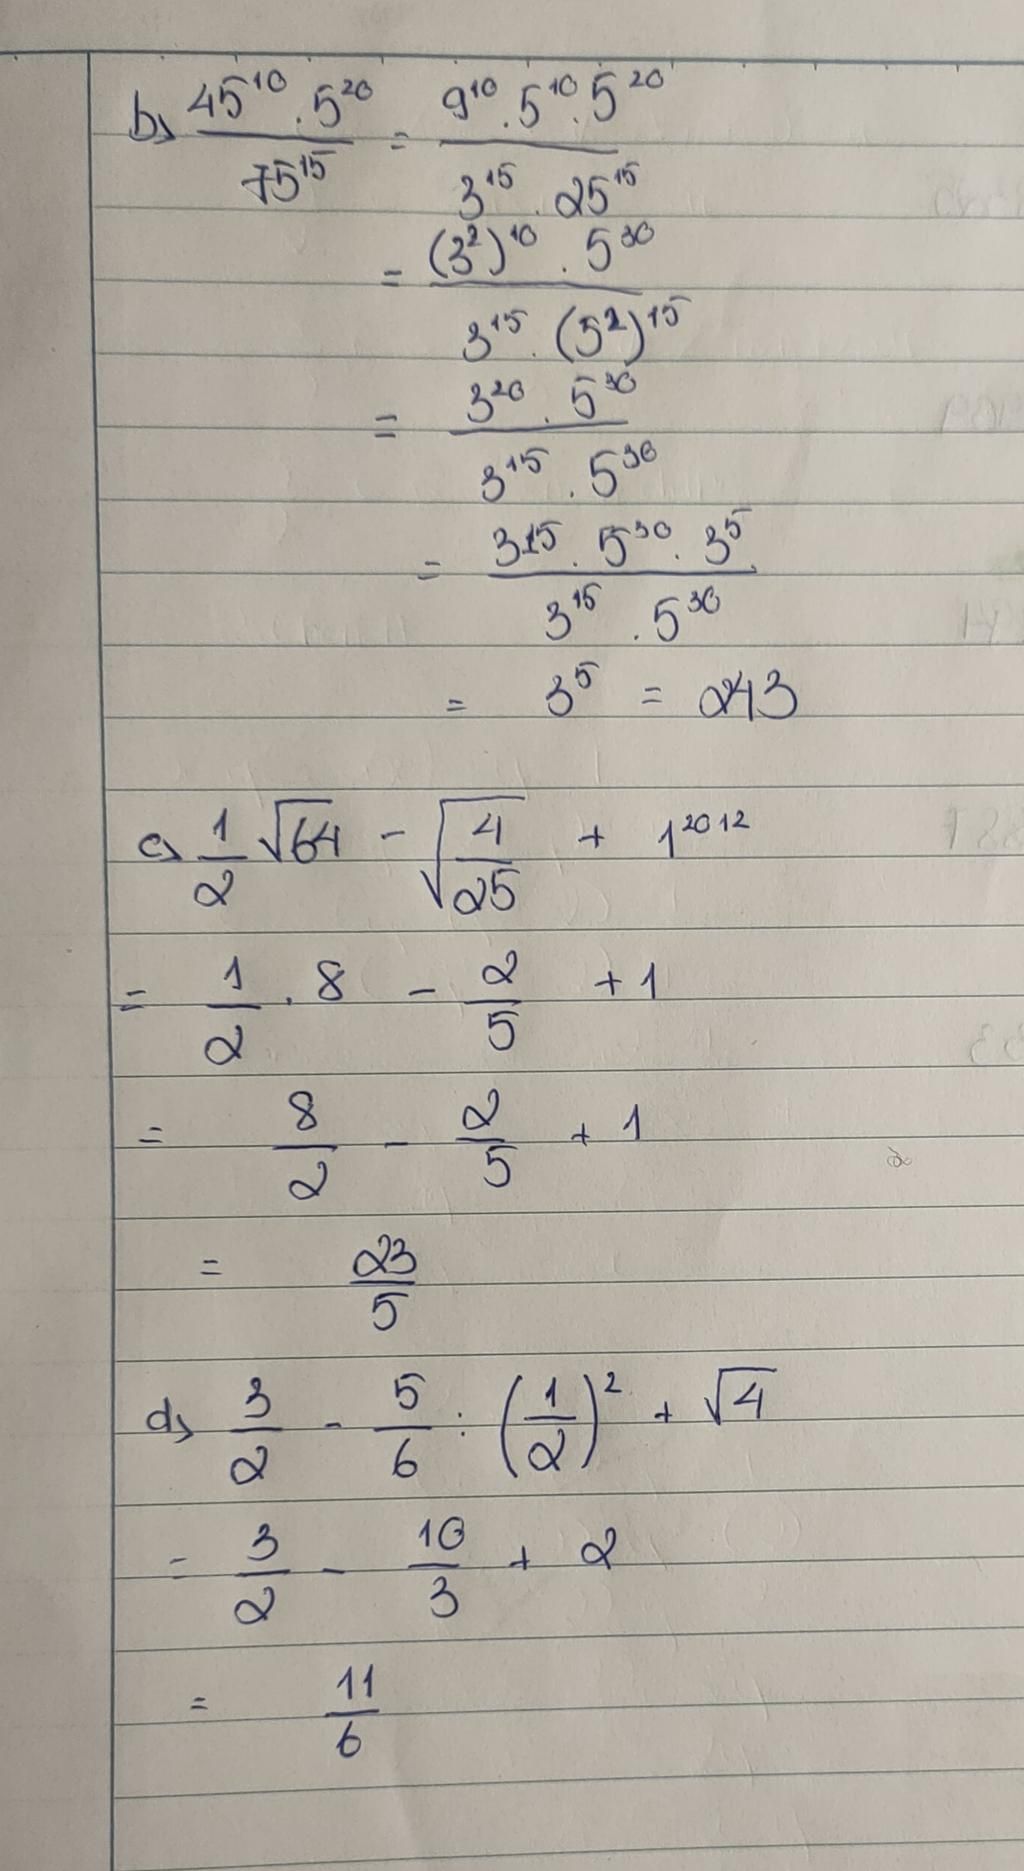 b) 45¹⁰ . 5²⁰ / 75¹⁵ = 9¹⁰ . 5¹⁰ . 5²⁰ / 3¹⁵ . 25¹⁵
= (3²)¹⁰ . 5³⁰ / 3¹⁵ . (5²)¹⁵
= 3²⁰ . 5³⁰ / 3¹⁵ . 5³⁰
= 3¹⁵ . 5³⁰ . 3⁵ / 3¹⁵ . 5³⁰
= 3⁵ = 243
c) 1/2 √64 - √(4/25) + 1²⁰¹²
= 1/2 . 8 - 2/5 + 1
= 8/2 - 2/5 + 1
= 23/5
d) 3/2 - 5/6 : (1/2)² + √4
= 3/2 - 10/3 + 2
= 11/6